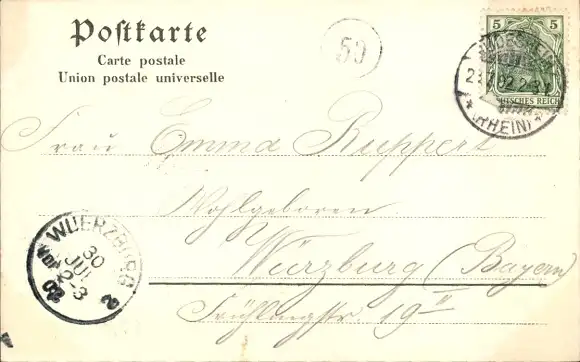 Postkarte
Carte postale
Union postale universelle
50
5 5
RÜDESHEIM
02.2-3
(RHEIN)
DEUTSCHES REICH
Frau Emma Ruppert
Wohlgeboren
Würzburg (Bayern)
Frühlingstr. 19 II
WUERZBURG 2
30 JUL
2-3
02